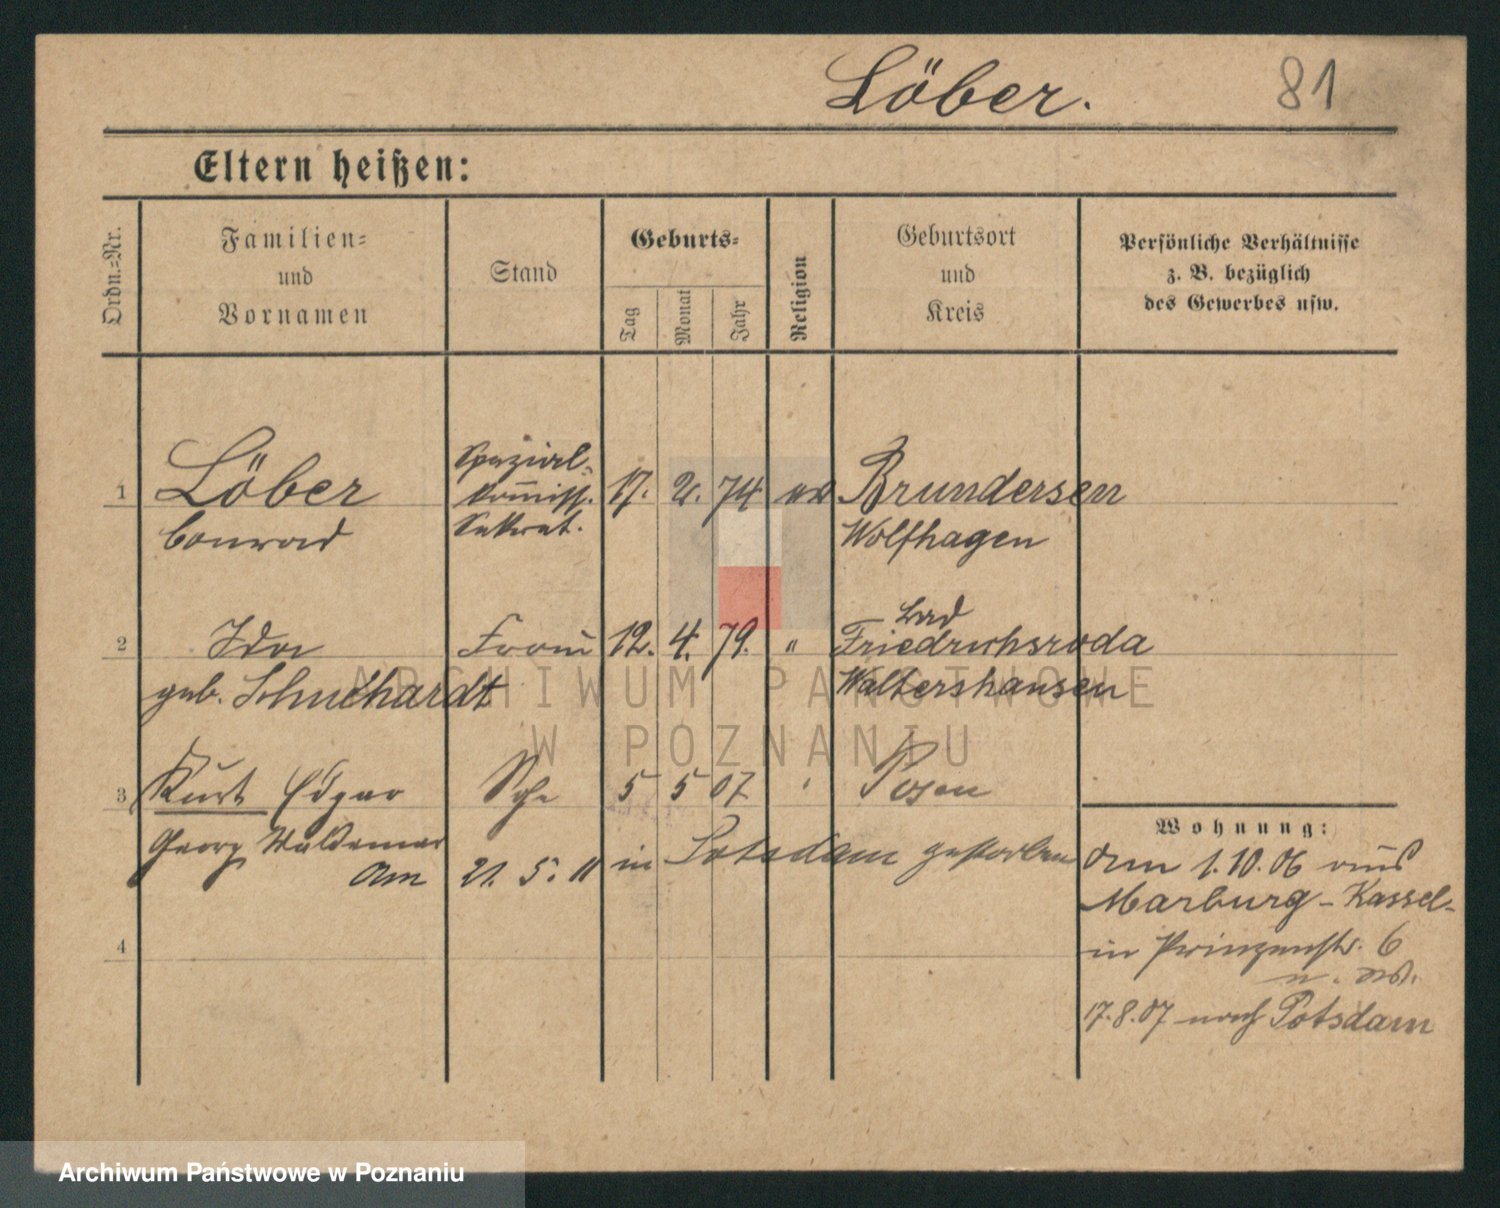 Löber.
81
Eltern heißen:
Ordn.=Nr.
Familien=
und
Vornamen
Stand
Geburts=
Tag
Monat
Jahr
Religion
Geburtsort
und
Kreis
Persönliche Verhältnisse
z. B. bezüglich
des Gewerbes usw.
1 Löber Spezial= 17. 2. 74 Brundersen
Conrad kommiss. Sekret. Wolfhagen
2 Ida Frau 12. 4. 79. " Bad Friedrichsroda
geb. Schuchardt Waltershausen
3 Kurt Edgar 5 5 07 Posen
Georg Waldemar
am 21. 5. 11 in Potsdam gestorben
4
Wohnung:
Am 1.10.06 aus
Marburg - Kassel-
in Prinzenstr. 6
17.8.07 nach Potsdam
ARCHIWUM PAŃSTWOWE
W POZNANIU
Archiwum Państwowe w Poznaniu